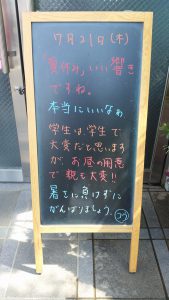 7月21日(木)
「夏休み」いい響き
ですね。
本当にいいなぁ
学生は、学生で
大変だと思います
が、お昼の用意
で親も大変!!
暑さに負けずに
がんばりましょう。